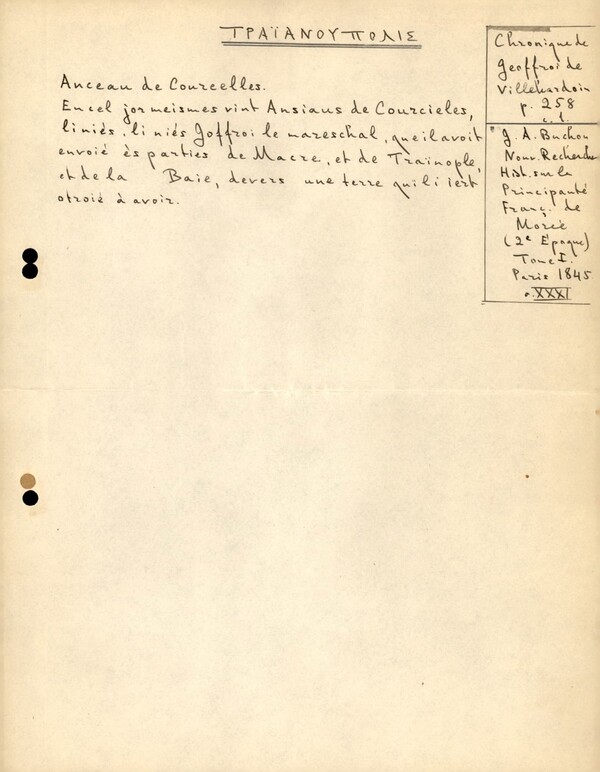 ΤΡΑΪΑΝΟΥΠΟΛΙΣ
Anceau de Courcelles.
En cel jor meismes vint Ansiaus de Courcieles,
li niés, li niés Joffroi le mareschal, que il avoit
envoié ès parties de Macre, et de Traïnople,
et de la Baie, devers une terre qui li iert
otroié à avoir.
Chronique de
Geoffroi de
Villehardoin
p. 258
c. 1.
J. A. Buchon
Nouv. Recherche
Hist. sur la
Principauté
Franç. de
Morée
(2e Époque)
Tome I.
Paris 1845
p. XXXI